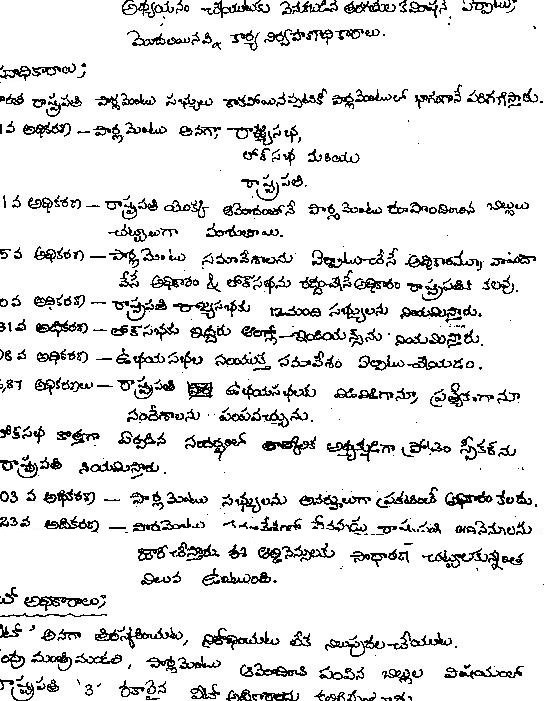 అధ్యయనం చేయుటకు వెనుకబడిన తరగతుల కమిషన్ ఏర్పాటు,
మొదలయినవి కార్య నిర్వహణాధికారాలు.
రాష్ట్రపతి పార్లమెంటు సభ్యులు కాకపోయినప్పటికీ పార్లమెంటులో భాగంగానే పరిగణిస్తారు.
వ అధికరణ – పార్లమెంటు అనగా రాజ్యసభ,
లోక్ సభ మరియు
రాష్ట్రపతి.
1 వ అధికరణ – రాష్ట్రపతి యొక్క ఆమోదంతోనే పార్లమెంటు రూపొందించిన బిల్లులు
చట్టాలుగా మారుతాయి.
5 వ అధికరణ – పార్లమెంటు సమావేశాలను ఏర్పాటుచేసే అధికారము, వాయిదా
వేసే అధికారం & లోక్ సభను రద్దుచేసే అధికారం రాష్ట్రపతికి కలవు.
0 వ అధికరణ – రాష్ట్రపతి రాజ్యసభకు 12 మంది సభ్యులను నియమిస్తారు.
31 వ అధికరణ – లోక్ సభకు ఇద్దరు ఆంగ్లో-ఇండియన్స్ ను నియమిస్తారు.
08 వ అధికరణ – ఉభయసభల సంయుక్త సమావేశం ఏర్పాటు చేయడం.
,87 అధికరణలు – రాష్ట్రపతి ఉభయసభలకు విడివిడిగాను, ప్రత్యేకంగానూ
సందేశాలను పంపవచ్చును.
లోక్ సభ కొత్తగా ఏర్పడిన సందర్భంలో తాత్కాలిక అధ్యక్షుడిగా ప్రొటెం స్పీకర్ ను
రాష్ట్రపతి నియమిస్తారు.
03 వ అధికరణ – పార్లమెంటు సభ్యులను అనర్హులుగా ప్రకటించే అధికారం కలదు.
23 వ అధికరణ – పార్లమెంటు రాష్ట్రపతి ఆర్డినెన్సులను
జారీ చేస్తారు. ఈ ఆర్డినెన్సులకు సాధారణ చట్టాలకున్నంత
విలువ ఉంటుంది.
వీటో అధికారాలు;
వీటో' అనగా తిరస్కరించుట, నిరోధించుట లేక నిలుపుదల చేయుట.
కేంద్ర మంత్రిమండలి, పార్లమెంటు ఆమోదించి పంపిన బిల్లుల విషయంలో
రాష్ట్రపతి '3' రకాలైన వీటో అధికారాలను